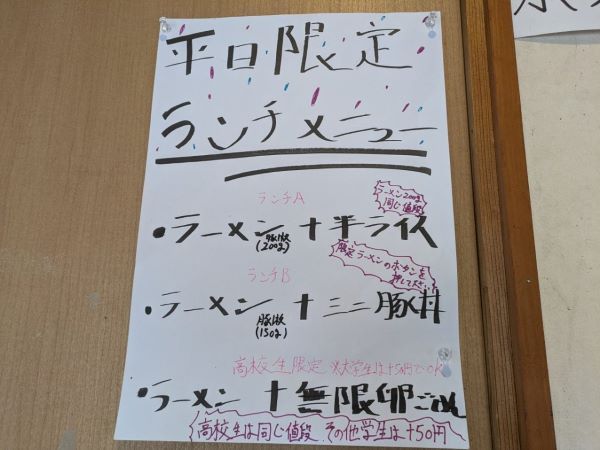 平日限定
ランチメニュー
ランチA
ラーメン200gと
同じ値段
•ラーメン(200g)+半ライス
限定ラーメンのボタンを
押してください
ランチB
•ラーメン(150g)+ミニ豚丼
高校生限定 ※大学生は+50円でOK
•ラーメン+無限卵ごはん
高校生は同じ値段 その他学生は+50円